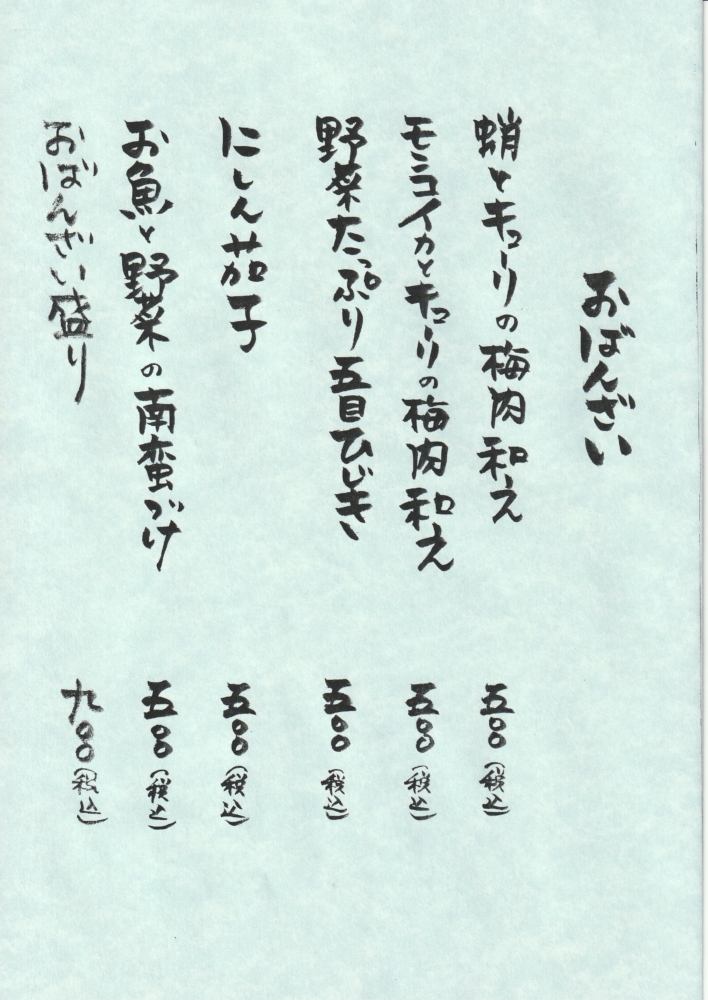 おばんざい
蛸とキューリの梅肉和え 五〇〇（税込）
モンゴイカとキューリの梅肉和え 五〇〇（税込）
野菜たっぷり五目ひじき 五〇〇（税込）
にしん茄子 五〇〇（税込）
お魚と野菜の南蛮づけ 五〇〇（税込）
おばんざい盛り 九〇〇（税込）